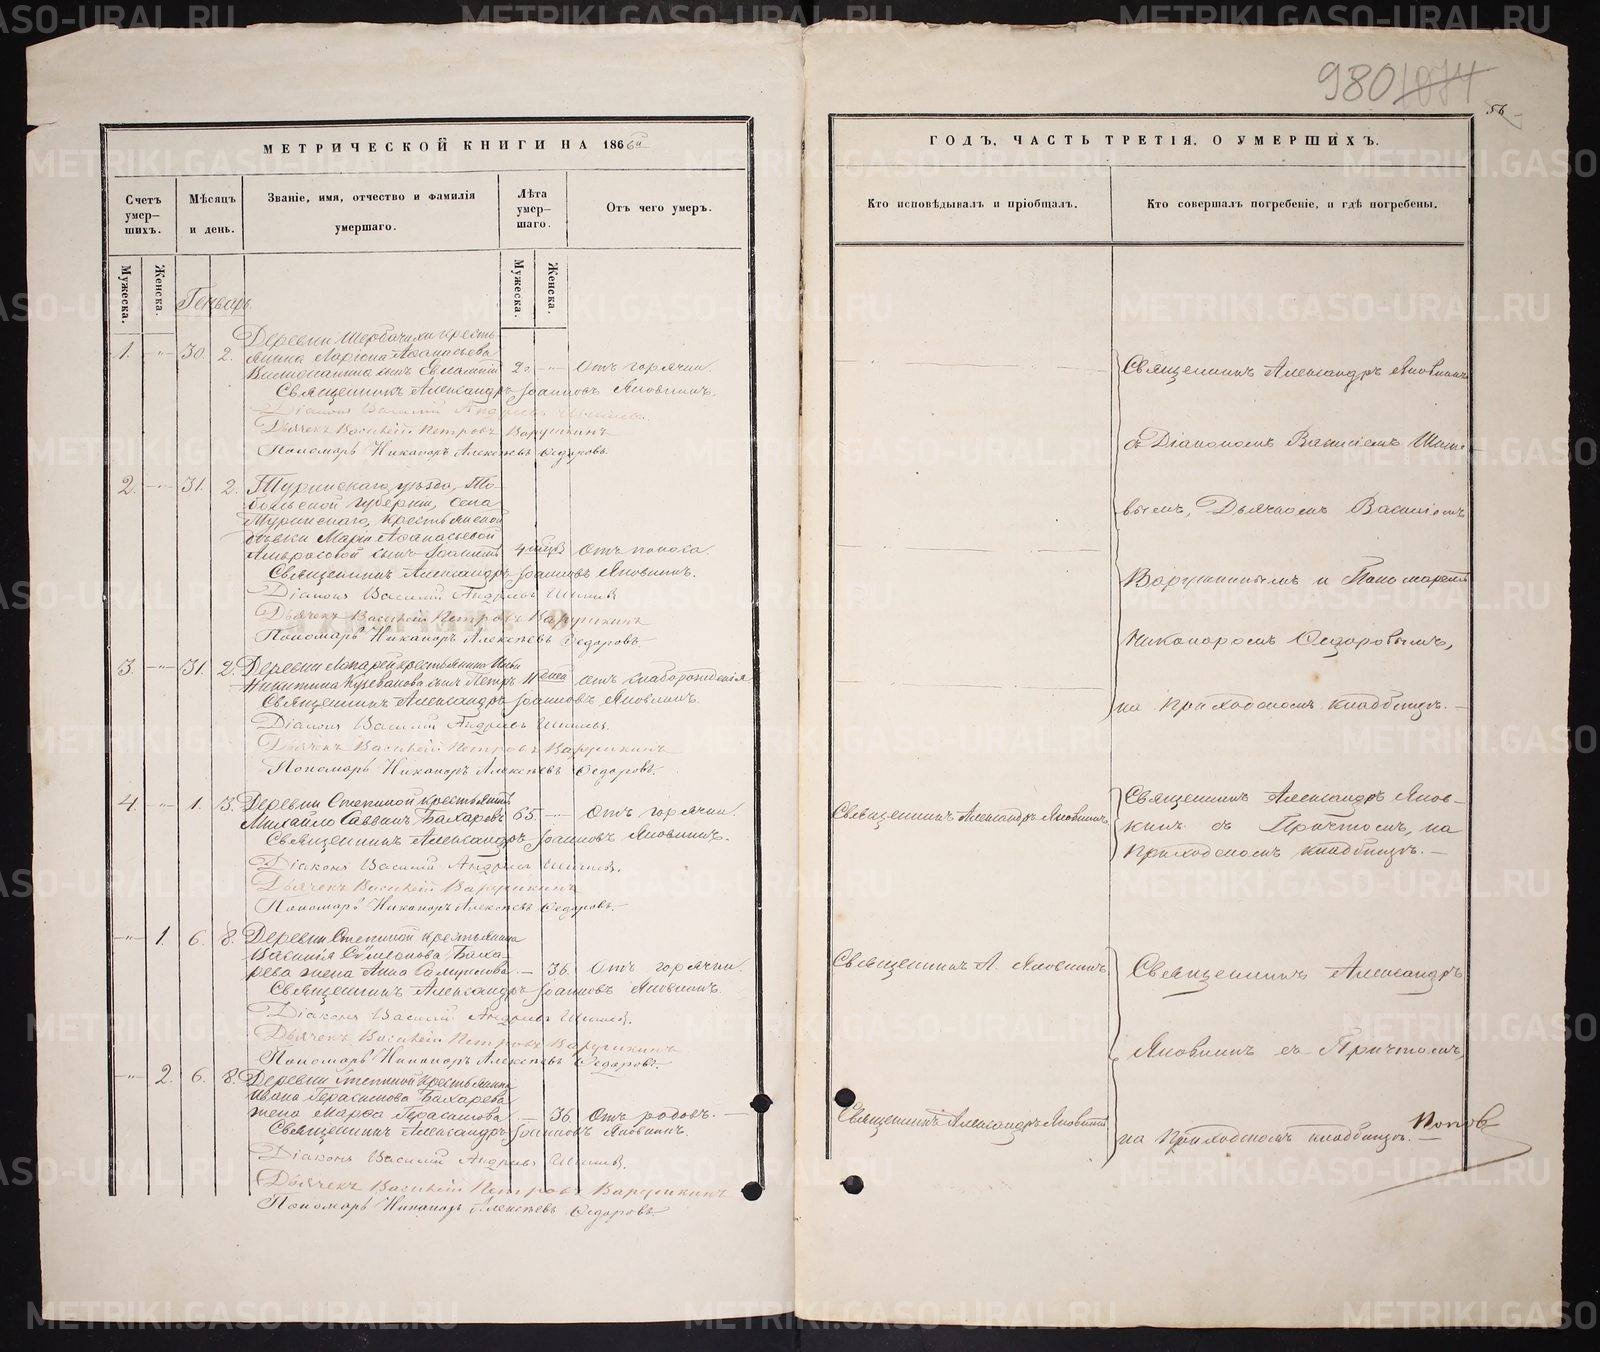 980 1074
56
МЕТРИЧЕСКОЙ КНИГИ НА 1866й
ГОДЪ, ЧАСТЬ ТРЕТІЯ, О УМЕРШИХЪ.
Счетъ умер-шихъ.
Мѣсяцъ и день.
Званіе, имя, отчество и фамилія умершаго.
Лѣта умер-шаго.
Отъ чего умеръ.
Кто исповѣдывалъ и пріобщалъ.
Кто совершалъ погребеніе, и гдѣ погребены.
Мужеска.
Женска.
Мужеска.
Женска.
Генварь
Деревни Щербачихи кресть-
1. -"- 30. 2. янина Ларіона Аѳанасьева
сынъ Евлампій 2 г. -"- Отъ горячки.
Священникъ Александръ Іоанновъ Яновкинъ.
Діаконъ Василій Андреевъ
Дьячекъ Василій Петровъ Варушкинъ
Пономарь Никаноръ Алексѣевъ Ѳедоровъ.
2. -"- 31. 2. Туринскаго уѣзда, То-
больской губерніи, села
Туринскаго, крестьянской
Марѳы Аѳанасьевой
Амвросовой сынъ Іоаннъ 4 Отъ поноса.
Священникъ Александръ Іоанновъ Яновкинъ.
Діаконъ Василій Андреевъ
Дьячекъ Василій Петровъ Варушкинъ
Пономарь Никаноръ Алексѣевъ Ѳедоровъ.
3. -"- 31. 2. Деревни Лопарей крестьянина Ильи
Никитина сынъ Петръ отъ слаборожденія
Священникъ Александръ Іоанновъ Яновкинъ.
Діаконъ Василій Андреевъ
Дьячекъ Василій Петровъ Варушкинъ
Пономарь Никаноръ Алексѣевъ Ѳедоровъ.
4. -"- 1. 3. Деревни Степиной крестьянинъ
Михайло Саввинъ Бахаревъ 65. -"- Отъ горячки.
Священникъ Александръ Іоанновъ Яновкинъ.
Діаконъ Василій Андреевъ
Дьячекъ Василій Варушкинъ
Пономарь Никаноръ Алексѣевъ Ѳедоровъ.
-"- 1. 6. 8. Деревни Степиной крестьянина
Василія Симеонова Баха-
рева жена Анна — 36. Отъ горячки.
Священникъ Александръ Іоанновъ Яновкинъ.
Діаконъ Василій Андреевъ
Дьячекъ Василій Петровъ Варушкинъ
Пономарь Никаноръ Алексѣевъ Ѳедоровъ.
-"- 2. 6. 8. Деревни Степиной крестьянина
Ивана Герасимова Бахарева
жена Марѳа Герасимова — 36. Отъ родовъ.
Священникъ Александръ Іоанновъ Яновкинъ.
Діаконъ Василій Андреевъ
Дьячекъ Василій Петровъ Варушкинъ
Пономарь Никаноръ Алексѣевъ Ѳедоровъ.
Священникъ Александръ Яновкинъ
съ Діакономъ Василіемъ
Дьячкомъ Василіемъ
Варушкинымъ и Пономаремъ
Никаноромъ Ѳедоровымъ,
на приходскомъ кладбищѣ.
Священникъ Александръ Яновкинъ.
Священникъ Александръ Янов-
кинъ съ Причтомъ, на
приходскомъ кладбищѣ.
Священникъ А. Яновкинъ.
Священникъ Александръ
Яновкинъ съ Причтомъ,
Священникъ Александръ Яновкинъ
на приходскомъ кладбищѣ.
Попов
METRIKI.GASO-URAL.RU